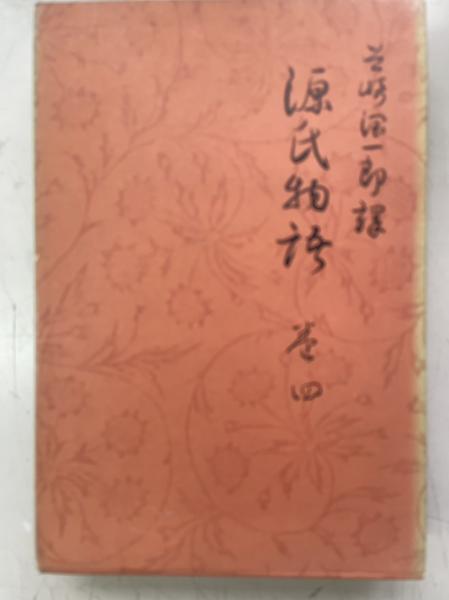 谷崎潤一郎譯
源氏物語 巻四